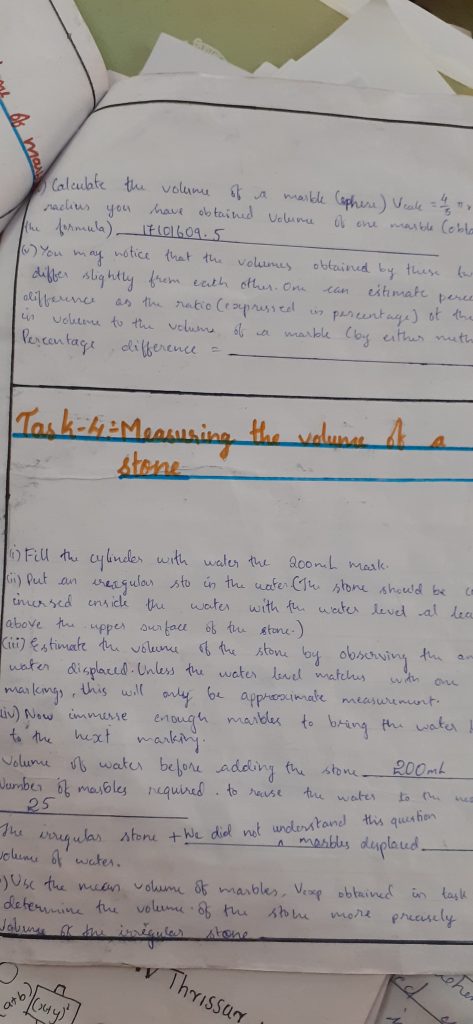 of mar
) Calculate the volume of a marble (sphere) Vcalc = 4/3 π r
radius you have obtained volume of one marble (obta
the formula) 17101609.5
(v) You may notice that the volumes obtained by these tw
differ slightly from each other. One can estimate perce
difference as the ratio (expressed in percentage) of the
in volume to the volume of a marble (by either meth
Percentage difference =
Task-4:-Measuring the volume of a
stone
(i) Fill the cylinder with water the 200mL mark.
(ii) Put an irregular sto in the water (The stone should be
immersed inside the water with the water level at lea
above the upper surface of the stone.)
(iii) Estimate the volume of the stone by observing the am
water displaced. Unless the water level matches with one
markings, this will only be approximate measurement.
(iv) Now immerse enough marbles to bring the water l
to the next marking.
Volume of water before adding the stone 200mL
Number of marbles required to raise the water to the ne
25
The irregular stone + We did not understand this question
^ marbles displaced
volume of water.
) Use the mean volume of marbles, Vexp obtained in task
determine the volume of the stone more precisely
Volume of the irregular stone
Thrissur
(a+b) (x+y)²